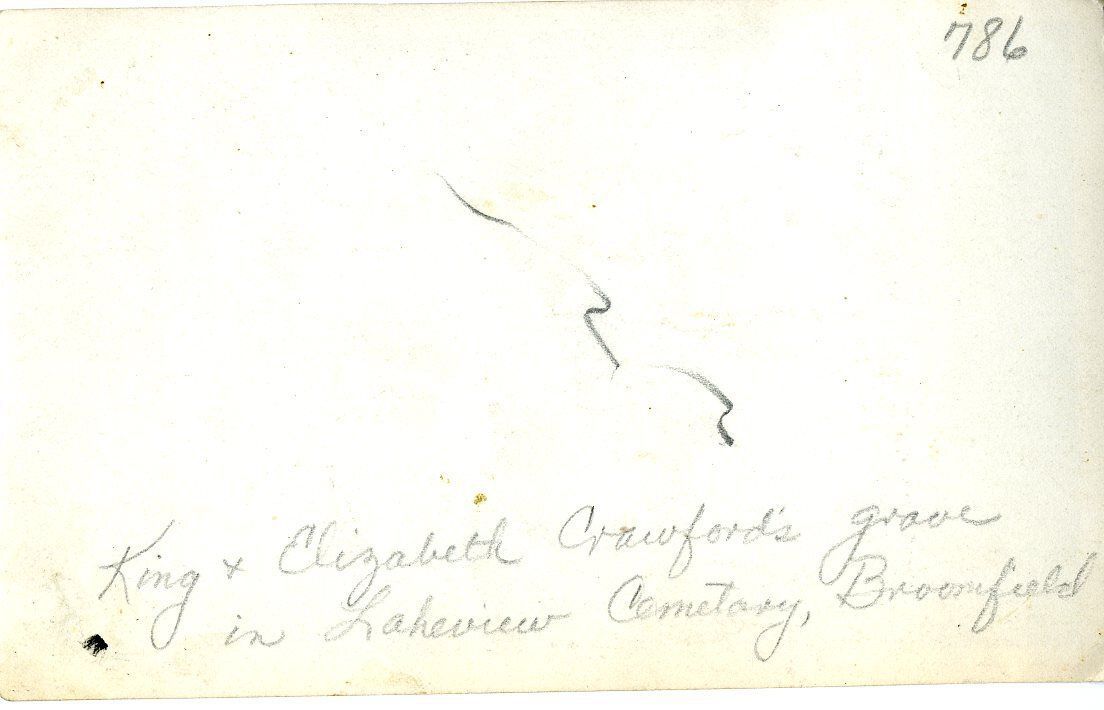 786
King + Elizabeth Crawford's grave
in Lakeview Cemetary, Broomfield